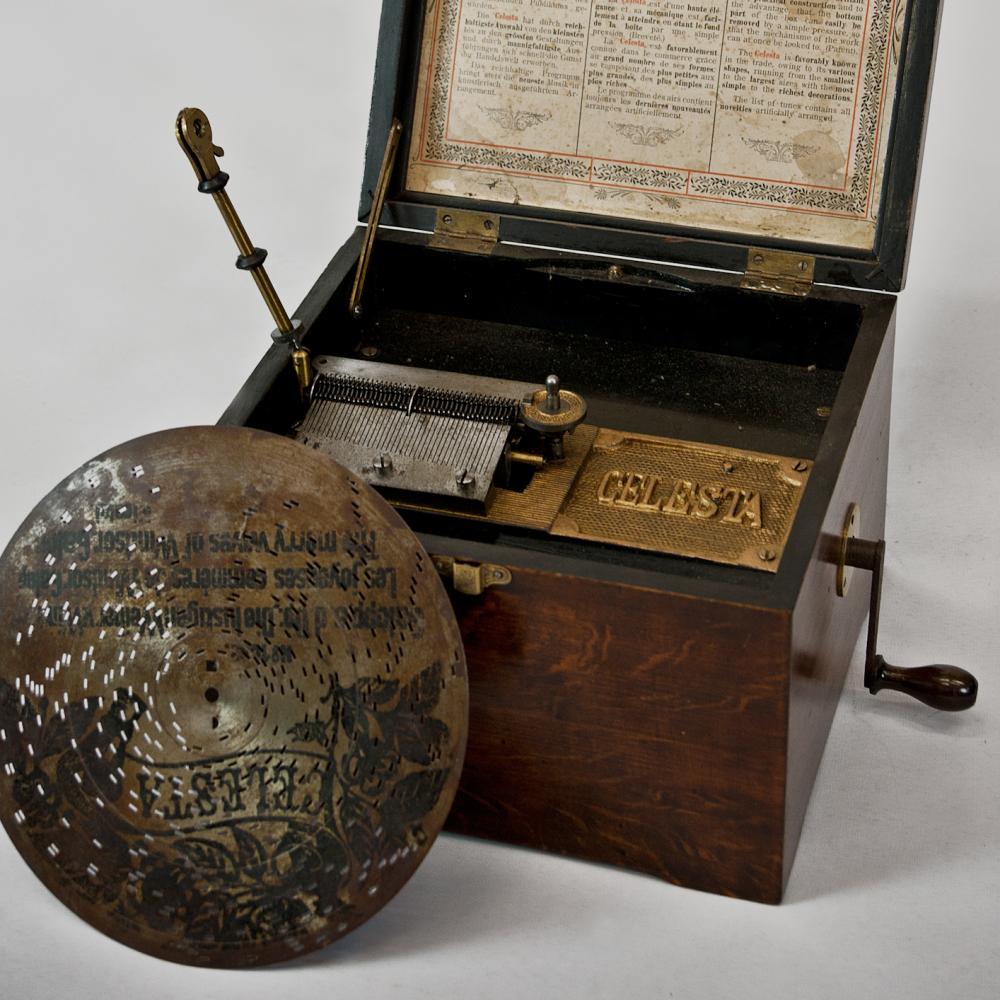 worden.
Die Celesta hat durch reich-
haltigste Auswahl von den kleinsten
bis zu den grössten Gestaltungen
und durch mannigfaltigste Aus-
schnell die Gunst
der Handelswelt erworben.
Das reichhaltige Programm
bringt stets die neueste Musik in
künstlerisch ausgeführtem Ar-
rangement.
Celesta est d'une haute élé-
gance et sa mécanique est facil-
lement à atteindre en ôtant le fond
de la boîte par une simple
pression (Breveté).
La Celesta est favorablement
connue dans le commerce grâce
au grand nombre de ses formes;
se composant des plus petites aux
plus grandes, des plus simples au
plus riches.
Le programme des airs contient
toujours les dernières nouveautés
arrangées artificiellement.
practical construction and to
the advantage that the bottom
part of the box can easily be
removed by a simple pressure, so
that the mechanisme of the work
can at once be looked to. (Patent.
The Celesta is favorably known
in the trade, owing to its various
shapes, running from the smallest
to the largest sizes with the most
simple to the richest decorations.
The list of tunes contains all
novelties artificially arranged.
CELESTA
CELESTA
d. Op. the lustigen Weiber v.
Les joyeuses commères de Windsor
The merry waves of Windsor